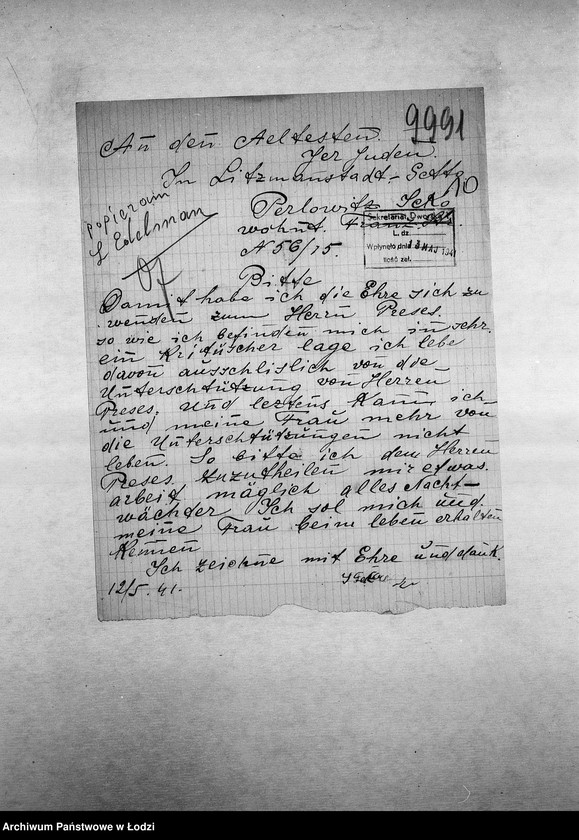 9991
An den Aeltesten
Der Juden.
In Litzmanstadt-Getto
10
popieram
L Edelman
Perlowitz Icko
wohnt. Franz. Str.
N 56/15.
Sekretariat Dworska
L. dz.
Wpłynęło dnia 13 MAJ 1941
Ilość zał.
Bitte
Damit habe ich die Ehre sich zu
wenden zum Herrn Preses.
so wie ich befinden mich in sehr.
ein Kritüscher lage ich lebe
davon ausschlislich von die
Unterschtützung von Herren
Preses. Und leztens Kann ich
und meine Frau mehr von
die Unterschtützungen nicht
leben. So bitte ich dem Herren
Preses. Anzutheilen mir etwas.
arbeit, mäglich alles Nacht-
wächder. Ich sol mich und
meine Frau beim leben erhalten
Kennen
Ich zeichne mit Ehre und dank.
12/5. 41.
Archiwum Państwowe w Łodzi